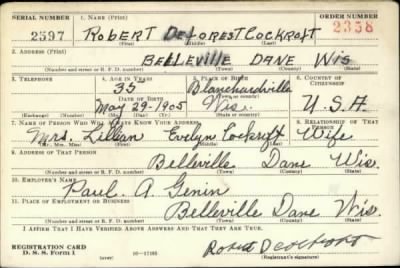 SERIAL NUMBER 1. NAME (Print) ORDER NUMBER
2597 ROBERT DEFOREST COCKROFT 2358
(First) (Middle) (Last)
2. ADDRESS (Print)
BELLEVILLE DANE WIS
(Number and street or R. F. D. number) (Town) (County) (State)
3. TELEPHONE 4. AGE IN YEARS 5. PLACE OF BIRTH 6. COUNTRY OF CITIZENSHIP
35 Blanchardville
DATE OF BIRTH (Town or county)
May 29-1905 Wis. U.S.A.
(Exchange) (Number) (Mo.) (Day) (Yr.) (State or country)
7. NAME OF PERSON WHO WILL ALWAYS KNOW YOUR ADDRESS 8. RELATIONSHIP OF THAT PERSON
Mrs. Lillian Evelyn Cockroft Wife
(Mr., Mrs., Miss) (First) (Middle) (Last)
9. ADDRESS OF THAT PERSON
Belleville Dane Wis.
(Number and street or R. F. D. number) (Town) (County) (State)
10. EMPLOYER'S NAME
Paul. A. Genin
11. PLACE OF EMPLOYMENT OR BUSINESS
Belleville Dane Wis.
(Number and street or R. F. D. number) (Town) (County) (State)
I AFFIRM THAT I HAVE VERIFIED ABOVE ANSWERS AND THAT THEY ARE TRUE.
REGISTRATION CARD
D. S. S. Form 1 (over) Robert D Cockroft
(Registrant's signature)